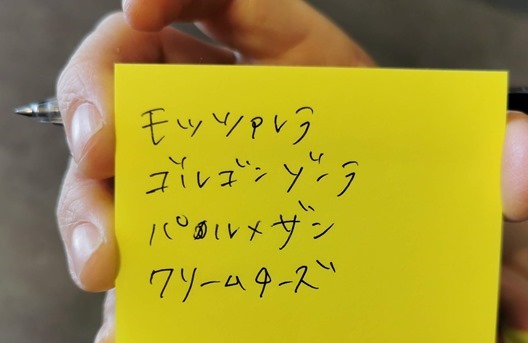 モッツァレラ
ゴルゴンゾーラ
パルメザン
クリームチーズ